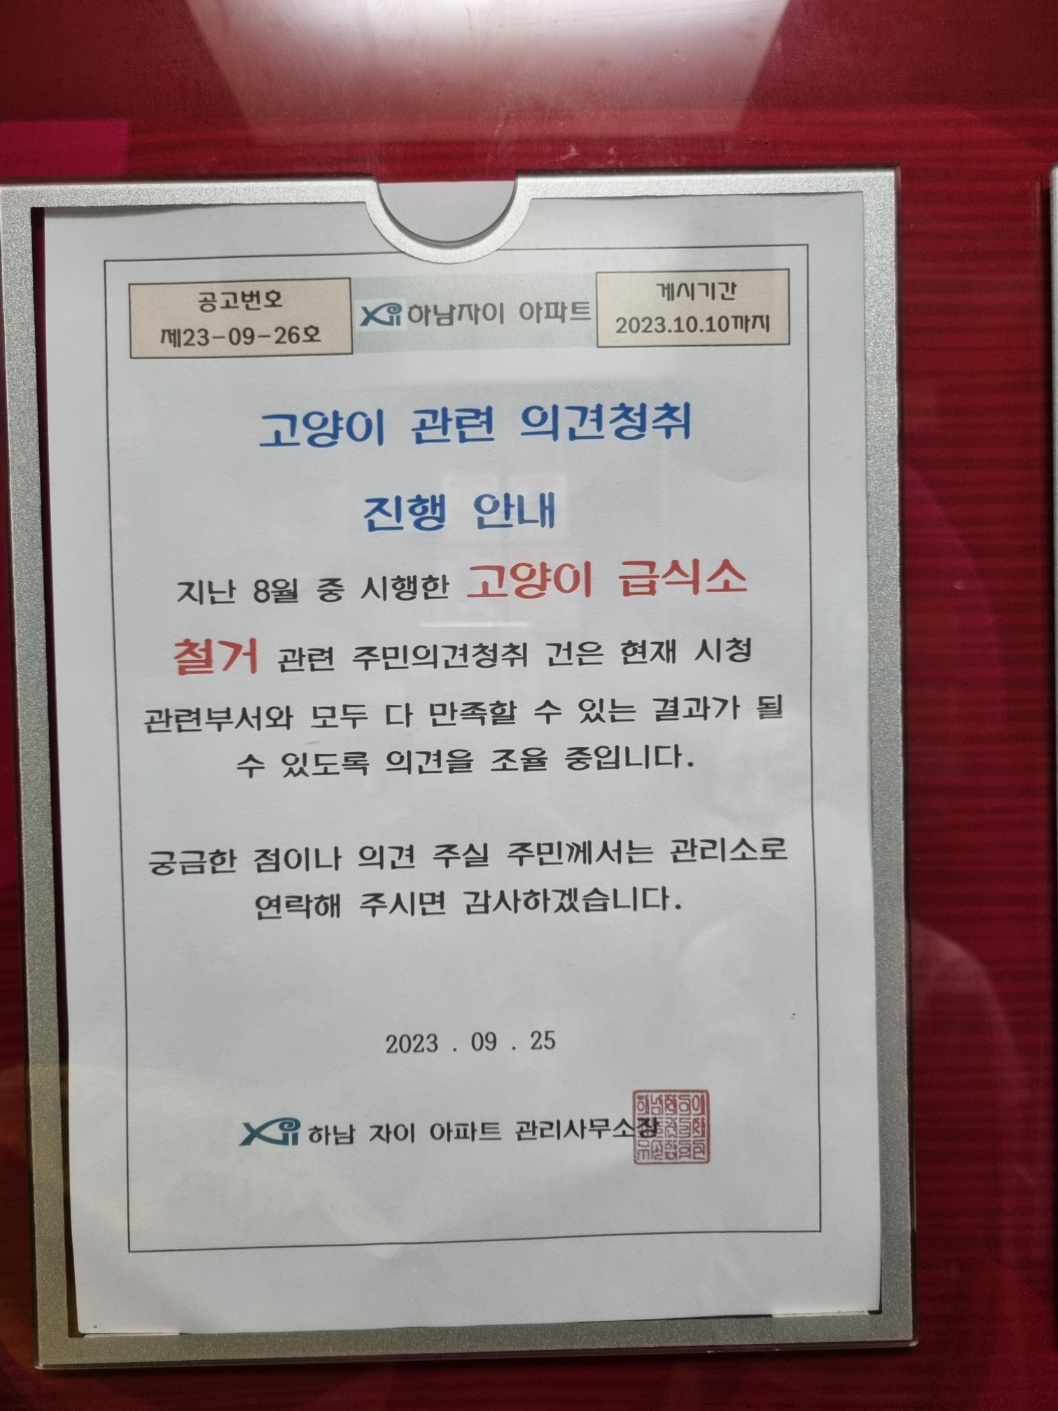 공고번호
제23-09-26호
Xi 하남자이 아파트
게시기간
2023.10.10까지
고양이 관련 의견청취
진행 안내
지난 8월 중 시행한 고양이 급식소
철거 관련 주민의견청취 건은 현재 시청
관련부서와 모두 다 만족할 수 있는 결과가 될
수 있도록 의견을 조율 중입니다.
궁금한 점이나 의견 주실 주민께서는 관리소로
연락해 주시면 감사하겠습니다.
2023 . 09 . 25
Xi 하남 자이 아파트 관리사무소장